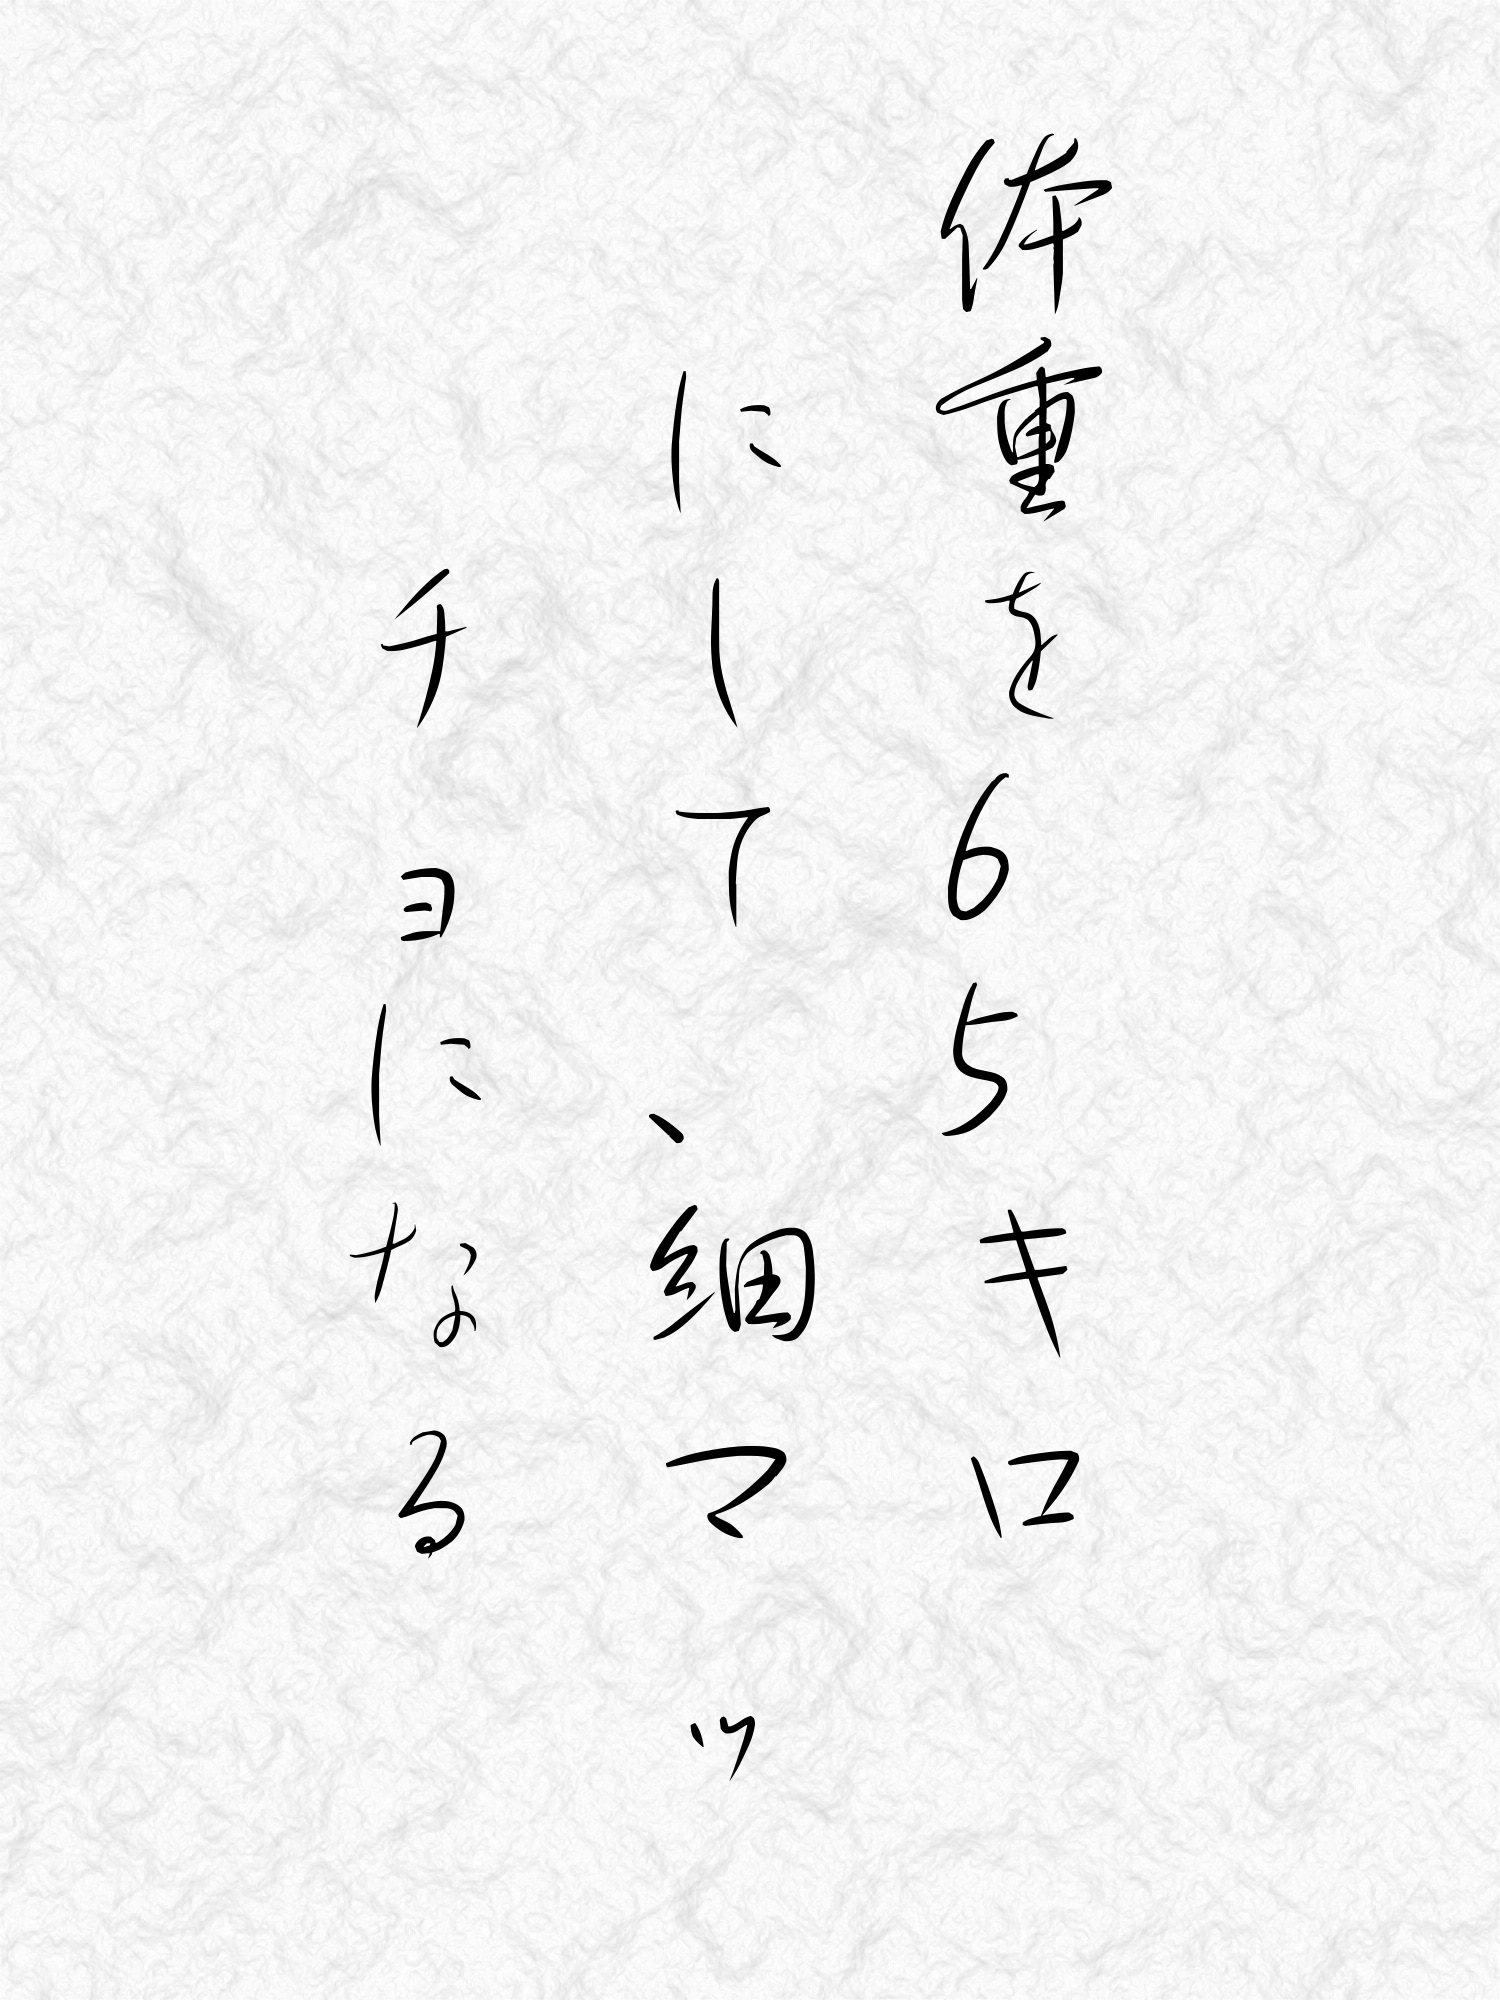 体重を65キロ
にして、細マッ
チョになる